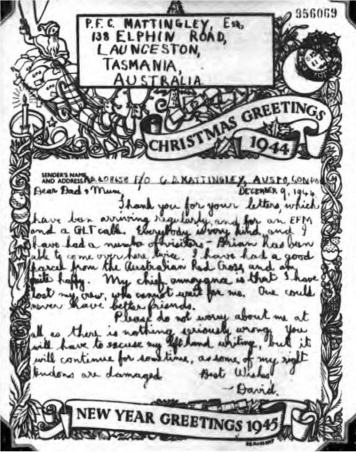 956069
P.F.C. MATTINGLEY, Esq,
138 ELPHIN ROAD,
LAUNCESTON,
TASMANIA,
AUSTRALIA
CHRISTMAS GREETINGS
1944
SENDER'S NAME
AND ADDRESS A408458 F/O G.D. MATTINGLEY, AUSPO, LONDON
Dear Dad & Mum, DECEMBER 9, 1944
Thank you for your letters, which
have been arriving regularly, and for an EFM
and a GLT call. Everybody is very kind, and I
have had a number of visitors - Brian has been
able to come over here twice. I have had a good
parcel from the Australian Red Cross, and am
quite happy. My chief annoyance is that I have
lost my crew, who cannot wait for me. One could
never have better friends.
Please do not worry about me at
all as there is nothing seriously wrong. You
will have to excuse my left hand writing, but it
will continue for sometime, as some of my right
tendons are damaged. Best Wishes
- David.
NEW YEAR GREETINGS 1945